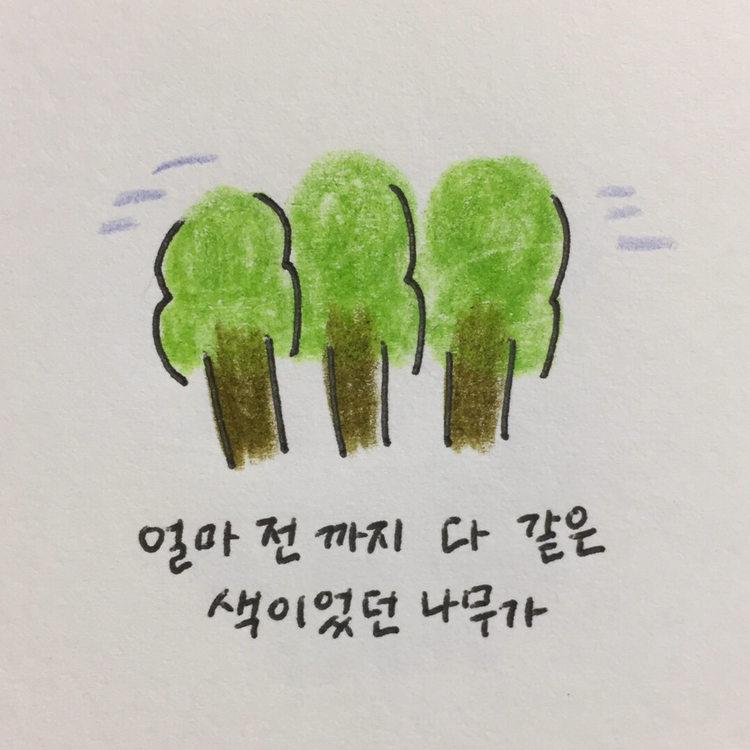 얼마 전 까지 다 같은
색이었던 나무가